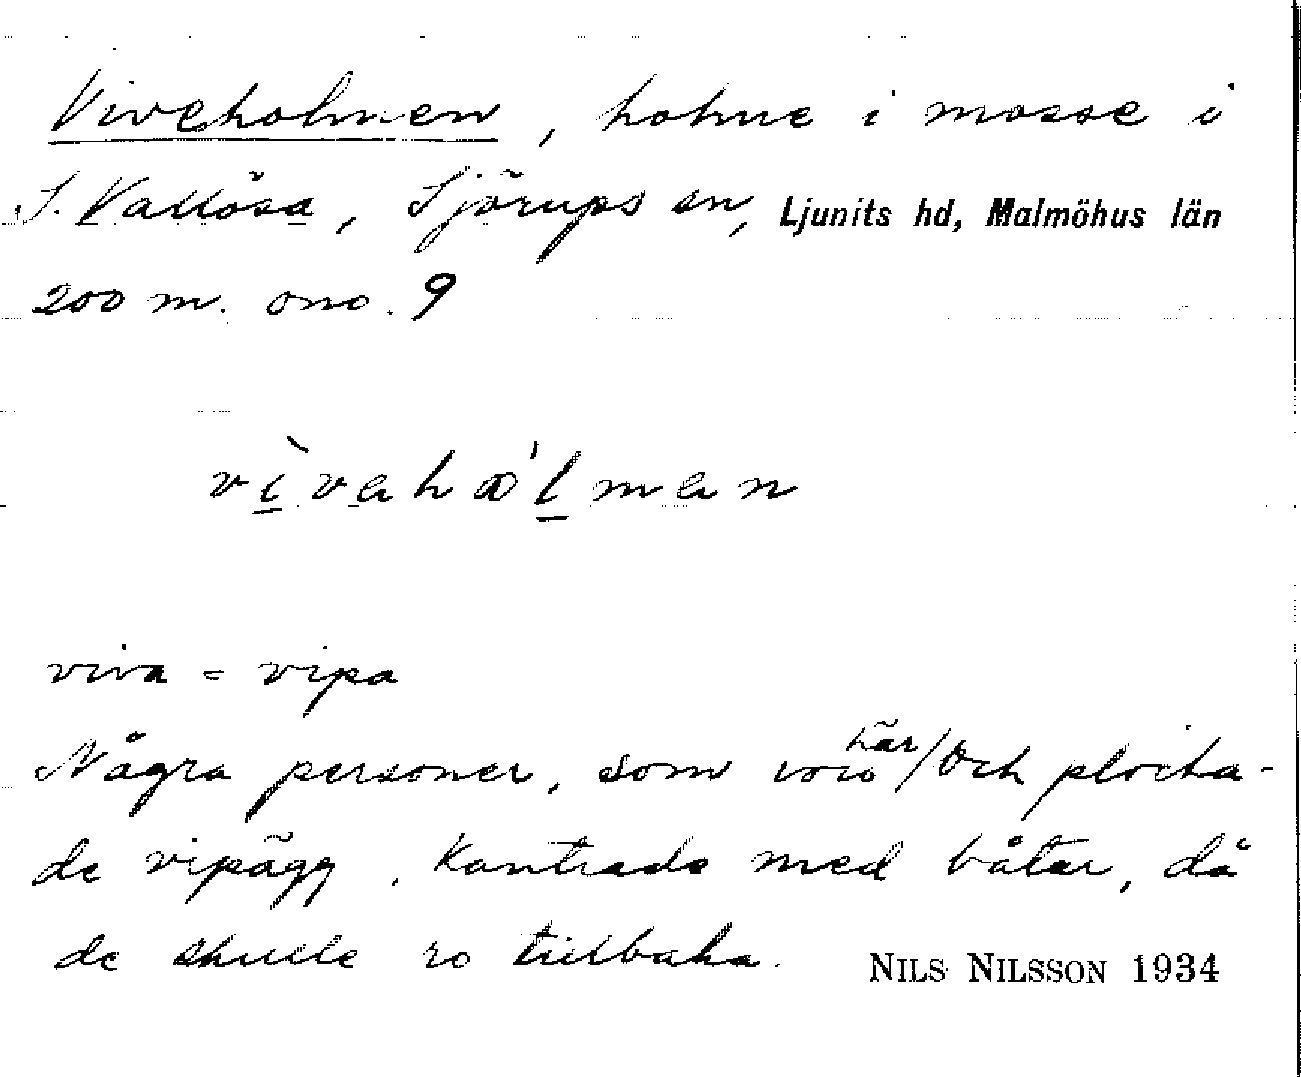 Viveholmen, holme i mosse i
S. Vallösa, Sjörups sn, Ljunits hd, Malmöhus län
200 m. ono. 9
vìvahol'man
viva = vipa
Några personer, som voro här/och plocka-
de vipägg, kantrade med båtar, då
de skulle ro tillbaka.
NILS NILSSON 1934